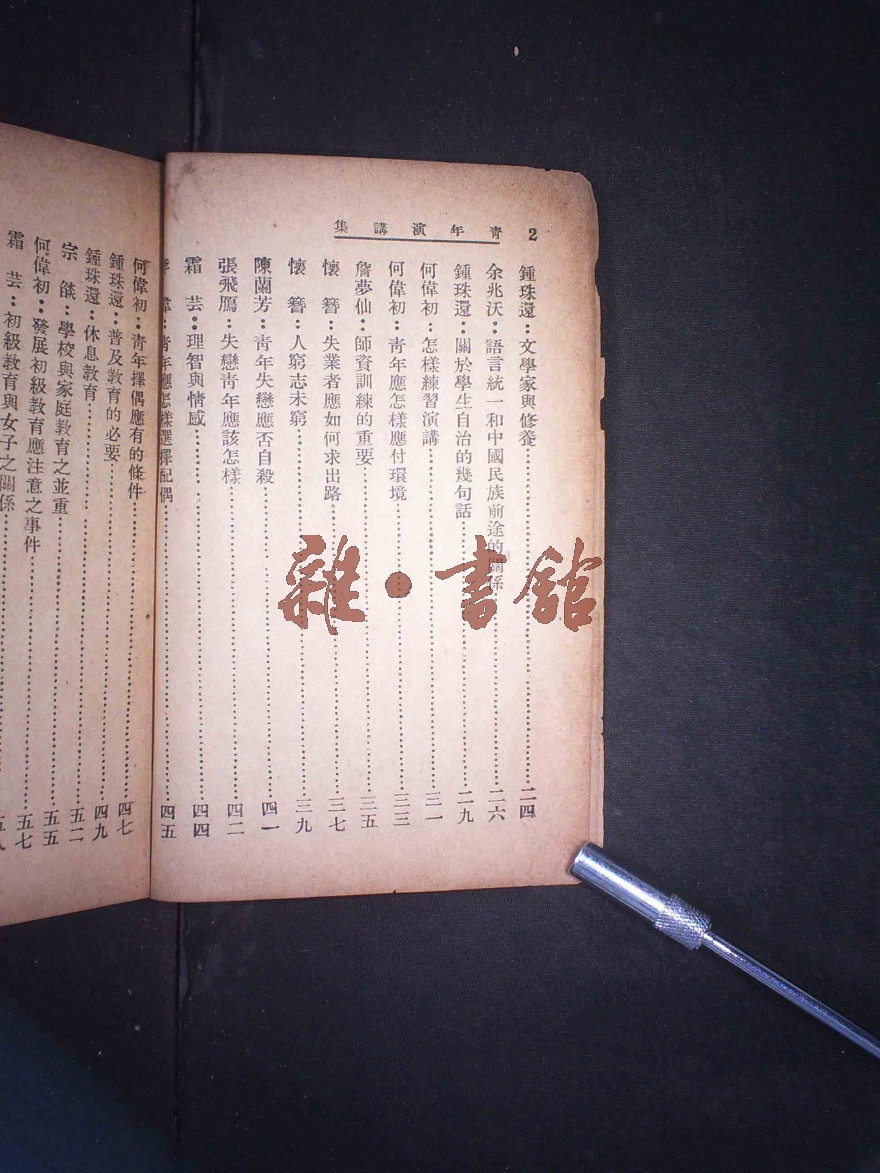 2 青年演講集
鍾珠還：文學家與修養……二四
余兆沃：語言統一和中國民族前途的關係……二六
鍾珠還：關於學生自治的幾句話……二九
何偉初：怎樣練習演講……三一
何偉初：青年應怎樣應付環境……三三
詹夢仙：師資訓練的重要……三五
懷簪：失業者應如何求出路……三七
懷簪：人窮志未窮……三九
陳蘭芳：青年失戀應否自殺……四一
張飛鴈：失戀青年應該怎樣……四二
霜芸：理智與情感……四四
：青年應怎樣選擇配偶……四五
何偉初：青年擇偶應有的條件……四七
鍾珠還：普及教育的必要……四九
鍾珠還：休息教育……五二
宗燄：學校與家庭教育之並重……五五
何偉初：發展初級教育應注意之事件……五七
霜芸：初級教育與女子之關係……五八
雜·書館